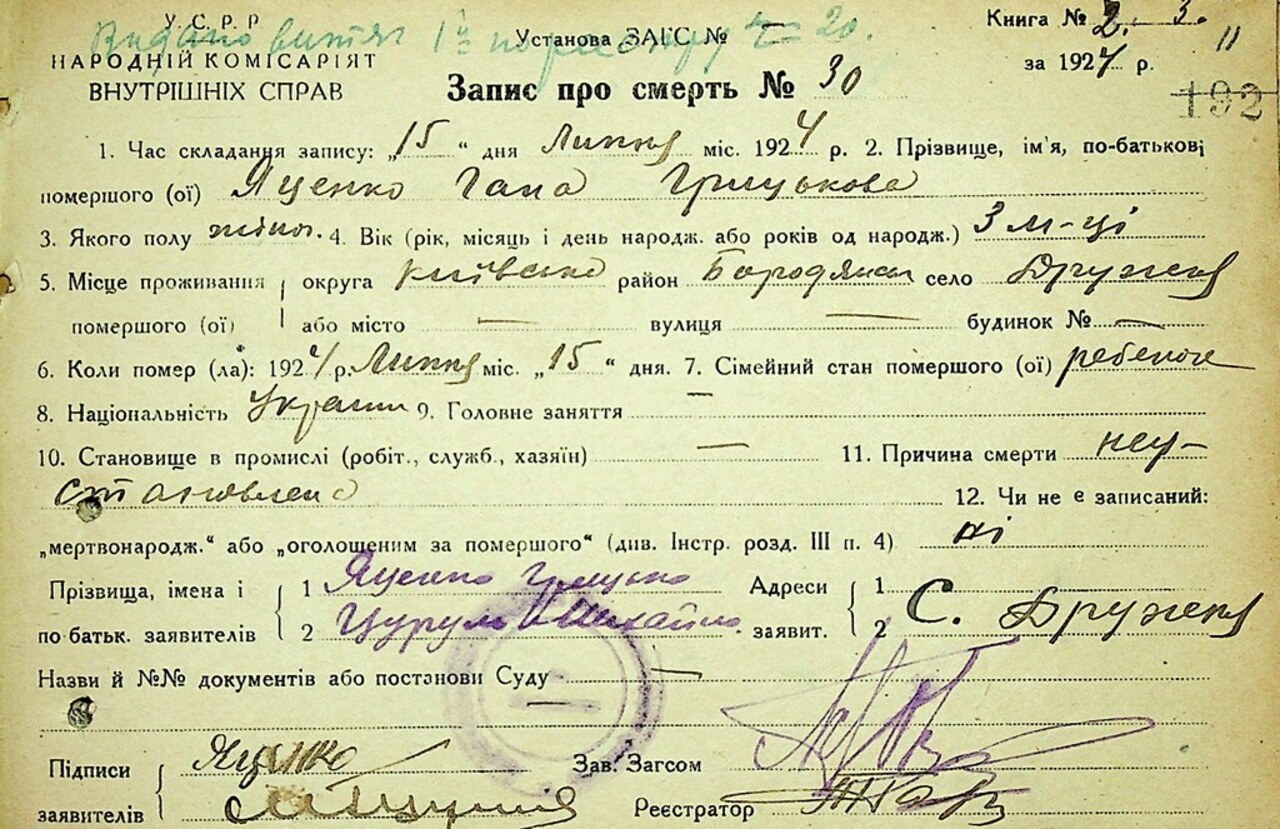 У. С. Р. Р
Видано витяг
НАРОДНІЙ КОМІСАРІЯТ
ВНУТРІШНІХ СПРАВ
Установа ЗАГС №
Запис про смерть № 30
Книга № 2. 3.
за 1924 р.
11
192
1. Час складання запису: „15“ дня Липня міс. 1924 р. 2. Прізвище, ім'я, по-батькові
помершого (ої) Яценко Гапа Грицькова
3. Якого полу жіноч. 4. Вік (рік, місяць і день народж. або років од народж.) 3 м-ці
5. Місце проживання округа Київська район Бородянськ село Дружня
помершого (ої) або місто — вулиця — будинок № —
6. Коли помер (ла): 1924 р. Липня міс. „15“ дня. 7. Сімейний стан помершого (ої) ребенок
8. Національність Україн 9. Головне заняття —
10. Становище в промислі (робіт., служб., хазяїн) — 11. Причина смерти неу-
становлено 12. Чи не є записаний:
„мертвонародж.“ або „оголошеним за помершого“ (див. Інстр. розд. III п. 4) ні
Прізвища, імена і 1 Яценко Грицько Адреси 1
по батьк. заявителів 2 Михайло заявит. 2 С. Дружня
Назви й №№ документів або постанови Суду —
—
Підписи Яценко Зав. Загсом
заявителів Реєстратор